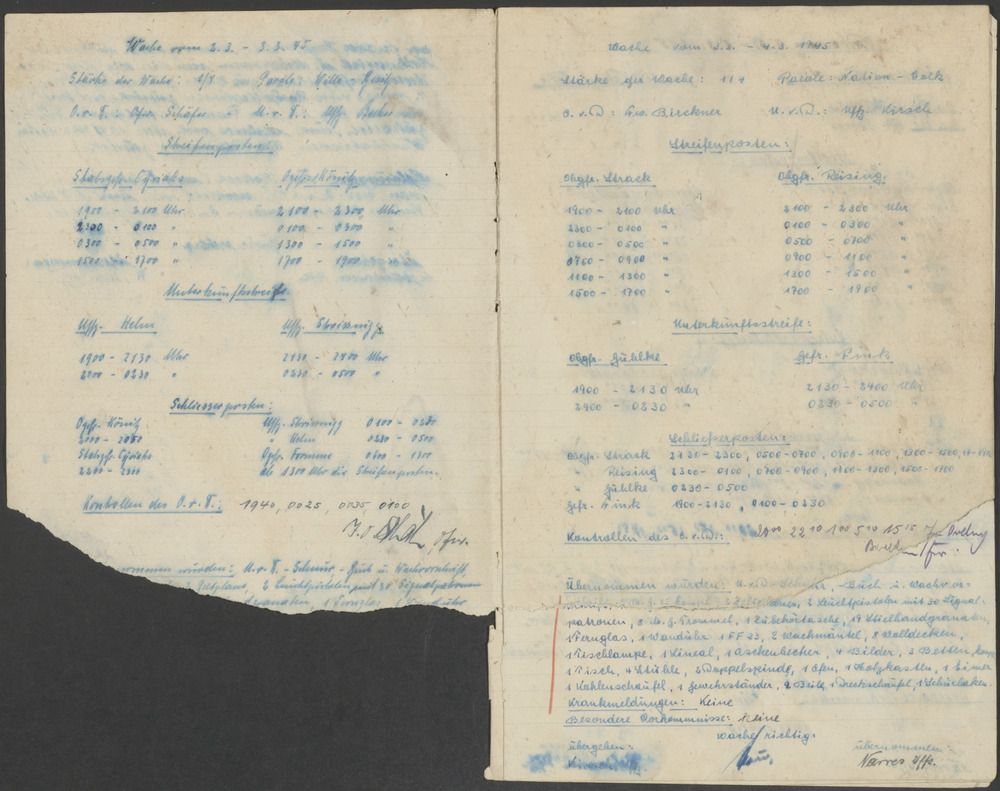 Wache vom 2.3. - 3.3. 45
Stärke der Wache: 1/7 Parole:
O.v.D.: Ofw. Schäfer U.v.D.: Uffz.
Streifenposten:
1900 - 2100 Uhr 2100 - 2300 Uhr
2300 - 0100 " 0100 - 0300 "
0300 - 0500 " 1300 - 1500 "
1500 - 1700 " 1700 - 1900 "
Unterkunftsstreife.
Uffz. Helm Uffz.
1900 - 2130 Uhr 2130 - 2400 Uhr
2400 - 0230 " 0230 - 0500 "
Schliesserposten:
Ogfr. König Uffz. 0100 - 0230
" Helm 0230 - 0500
Stabsgfr. Ogfr.
2200 - 2300 ab 1300 Uhr die Streifenposten.
Kontrollen des O.v.D.: 1940, 0025, 0035, 0100
ommen wurden: U.v.D. - Schnur - Buch u. Wachvorschrift
2 Leuchtpistolen mit 30 Signalpatronen
Wache vom 3.3. - 4.3. 1945
Stärke der Wache: 1/7 Parole: Nation - Volk
O.v.D.: Fw. Birckner U.v.D.: Uffz. Kirsch
Streifenposten:
Obgfr. Strack Obgfr. Reising.
1900 - 2100 Uhr 2100 - 2300 Uhr
2300 - 0100 " 0100 - 0300 "
0300 - 0500 " 0500 - 0700 "
0700 - 0900 " 0900 - 1100 "
1100 - 1300 " 1300 - 1500 "
1500 - 1700 " 1700 - 1900 "
Unterkunftsstreife:
Obgfr. Gühlke Gefr. Pink
1900 - 2130 Uhr 2130 - 2400 Uhr
2400 - 0230 " 0230 - 0500 "
Schließerposten:
Obgfr. Strack 2130 - 2300, 0500-0700, 0900-1100, 1300-1500,
" Reising 2300 - 0100, 0700-0900, 1100-1300, 1500-1700
" Gühlke 0230 - 0500
Gefr. Pink 1900-2130, 0100-0230
Kontrollen des O.v.D.: 2000 2210 100 510 1515
Übernommen wurden: U.v.D. Schnur, -Buch u. Wachvor-
2 Leuchtpistolen mit 30 Signal-
patronen, 8 M.G. Trommel, 1 Zubehörtasche, 19 Stielhandgranaten
1 Fernglas, 1 Wanduhr, 1 FF 33, 2 Wachmäntel, 8 Wolldecken,
1 Tischlampe, 1 Lineal, 1 Aschenbecher, 4 Bilder, 3 Betten,
1 Tisch, 4 Stühle, 2 Doppelspinde, 1 Ofen, 1 Holzkasten, 1 Eimer
1 Kohlenschaufel, 1 Gewehrständer, 2 Beile, 1 Dreckschaufel, 1 Schürhaken.
Krankmeldungen: Keine
Besondere Vorkommnisse: Keine
Wache richtig.
übergeben: übernommen:
Kirsch Narres Uffz.